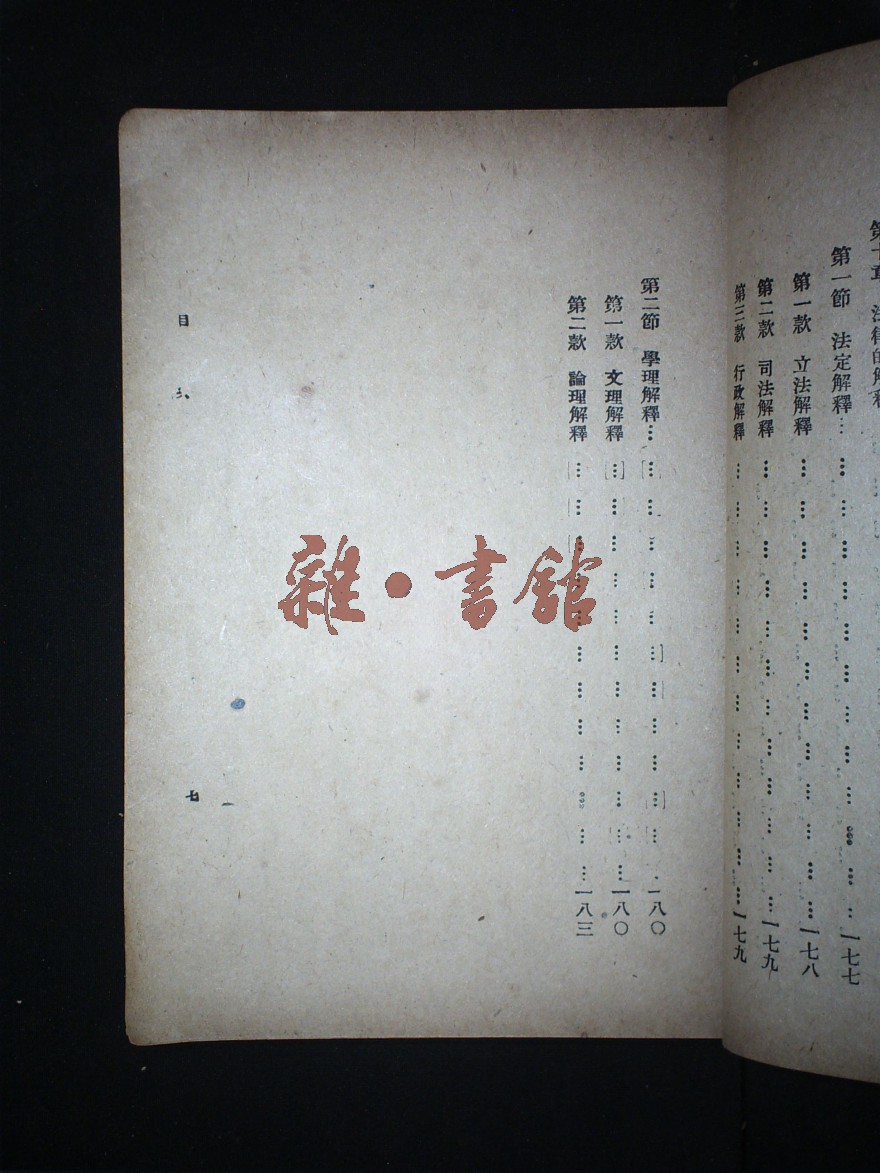 第十章 法律的解釋
第一節 法定解釋…………………………一七七
第一款 立法解釋…………………………一七八
第二款 司法解釋…………………………一七九
第三款 行政解釋…………………………一七九
第二節 學理解釋…………………………一八〇
第一款 文理解釋…………………………一八〇
第二款 論理解釋…………………………一八三
目
七
雜·書館